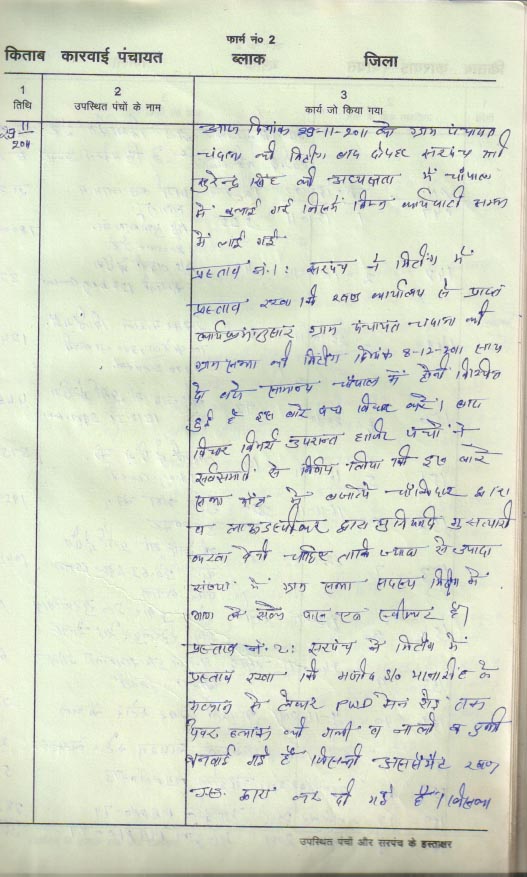 फार्म नं० 2
किताब कारवाई पंचायत ब्लाक जिला
1 2 3
तिथि उपस्थित पंचों के नाम कार्य जो किया गया
29 11 2011
आज दिनांक 29-11-2011 को ग्राम पंचायत
चंदाना की मिटींग बाद दोपहर सरपंच श्री
सुरेन्द्र सिंह की अध्यक्षता में चौपाल
में बुलाई गई जिसमें निम्न कार्यवाही अमल
में लाई गई
प्रस्ताव नं. 1: सरपंच ने मिटींग में
प्रस्ताव रखा कि खण्ड कार्यालय से प्राप्त
कार्यक्रमानुसार ग्राम पंचायत चंदाना की
ग्राम सभा की मिटींग दिनांक 8-12-2011 साय
दो बजे सामान्य चौपाल में होनी निश्चित
हुई है इस बारे पंच विचार करें। बाद
विचार विमर्श उपरान्त हाजिर पंचों ने
सर्वसम्मति से निर्णय लिया कि इस बारे
सभा क्षेत्र में चौकिदार द्वारा
व लाऊडस्पीकर द्वारा मुनादी
करवा देनी चाहिए ताकि ज्यादा से ज्यादा
संख्या में ग्राम सभा सदस्य मिटींग में
भाग ले सकें पास एवं स्वीकार है।
प्रस्ताव नं. 2: सरपंच ने मिटींग में
प्रस्ताव रखा कि S/o मानसिंह के
मकान से लेकर PWD मेन रोड तक
पेवर ब्लाक की गली व नाली
बनवाई गई है जिसकी असेसमेंट
द्वारा कर दी गई है। जिसका
उपस्थित पंचों और सरपंच के हस्ताक्षर